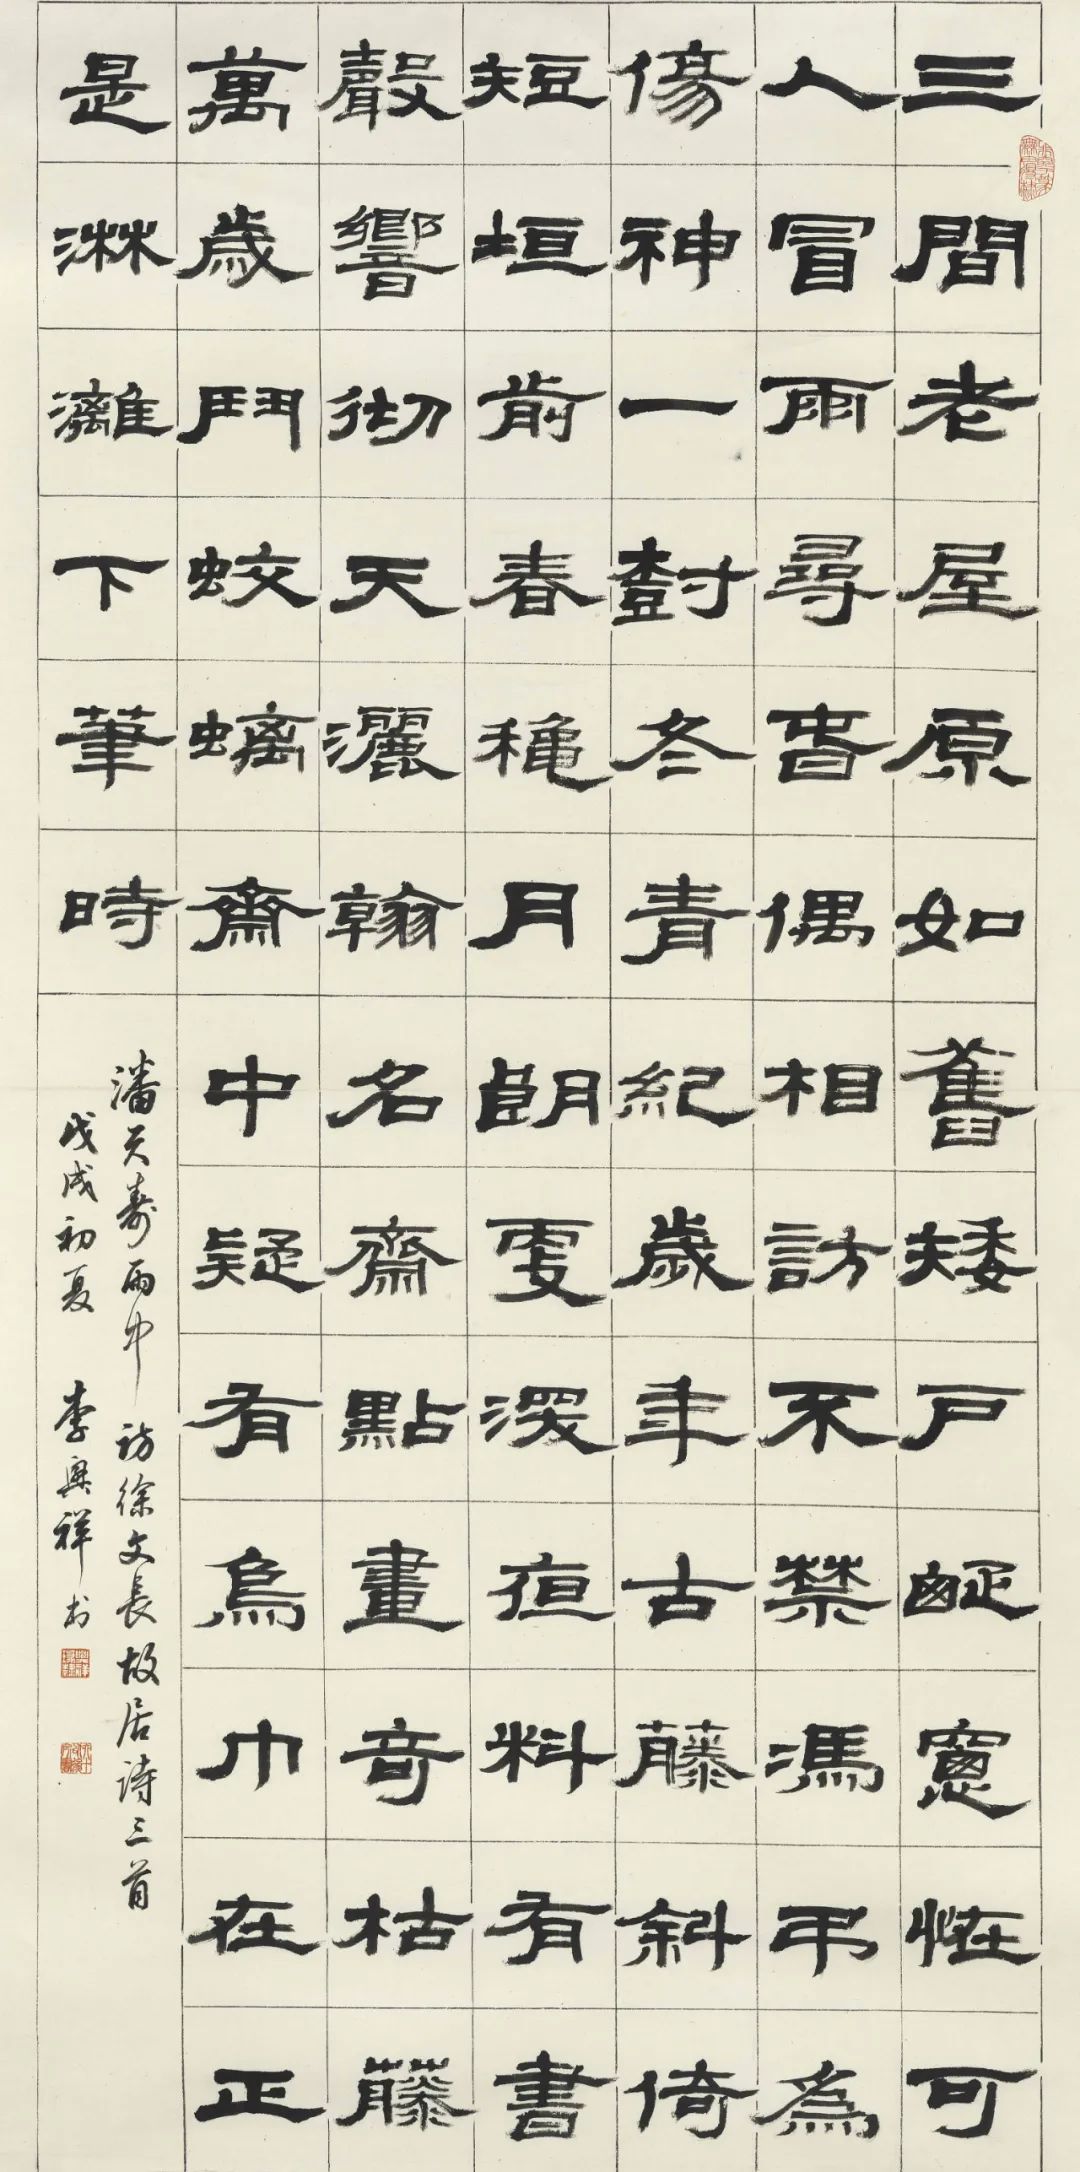 三間老屋原如舊矮戶疏窻恠可
人冒雨尋旾偶相訪不禁馮弔為
傷神一樹冬青紀歲年古藤斜倚
短垣前春穐月朗更深夜料有書
聲響彻天灑翰名齋點畫奇枯藤
萬歲鬥蛟螭齋中疑有烏巾在正
是淋灕下筆時
潘天壽雨中訪徐文長故居詩三首
戊戌初夏 李興祥书